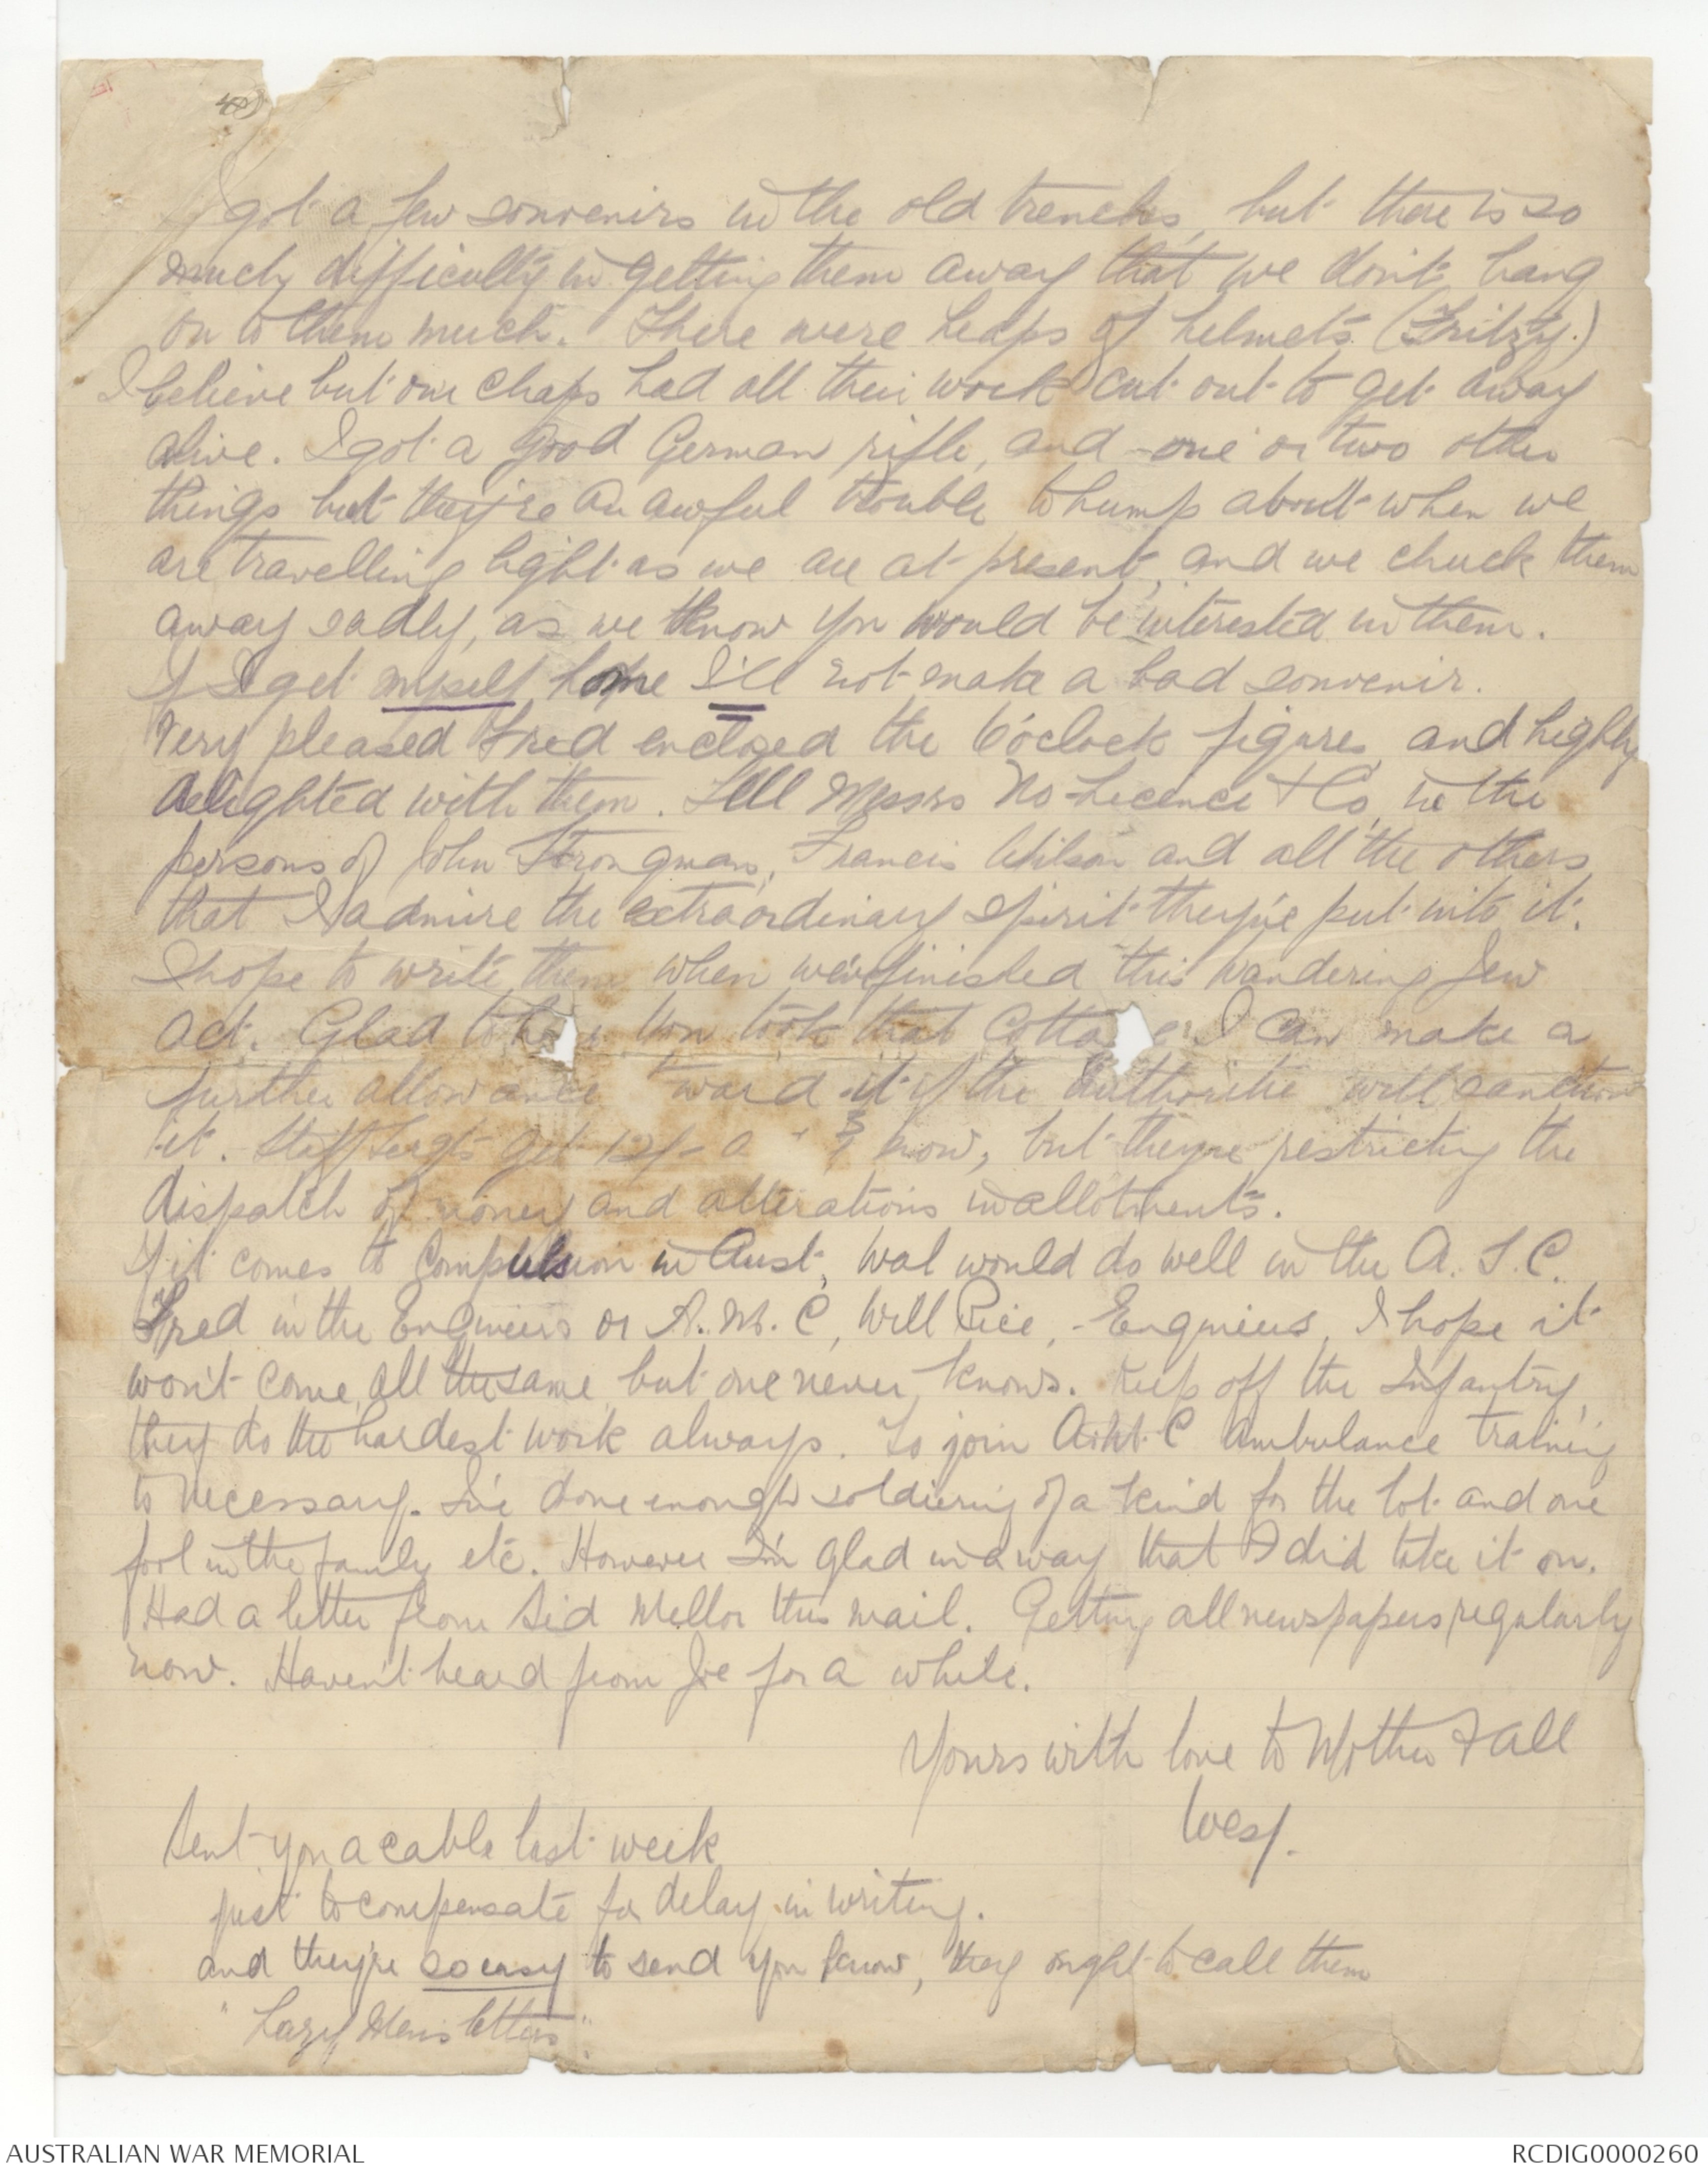 4
I got a few souvenirs in the old trenches, but there is so
much difficulty in getting them away that we don't hang
on to them much. There were heaps of helmets (Fritzy.)
I believe but our chaps had all their work cut out to get away
alive. I got a good German rifle, and one or two other
things but they're an awful trouble to hump about when we
are travelling light as we are at present, and we chuck them
away sadly, as we know you would be interested in them.
If I get myself home I'll not make a bad souvenir.
Very pleased Fred enclosed the 6 o'clock figures, and highly
delighted with them. Tell Messrs No-Licence & Co, in the
persons of John Strongman, Francis Wilson and all the others
that I admire the extraordinary spirit they've put into it.
I hope to write them when we've finished this wandering Jew
act. Glad to you took that Cottage. I can make a
further allowance toward it if the Authorities will sanction
it. Staff Sergts get 12/- a know, but they're restricting the
dispatch of money and alterations in allotments.
If it comes to Compulsion in Aust, Wal would do well in the A.S.C.
Fred in the Engineers or A.M.C, Will Rice, - Engineers, I hope it
won't come, all the same, but one never knows. Keep off the Infantry,
they do the hardest work always. To join A.M.C Ambulance training
is necessary. I've done enough soldiering of a kind for the lot and one
fool in the family etc. However I'm glad in a way that I did take it on.
Had a letter from Sid Mellor this mail. Getting all newspapers regularly
now. Haven't heard from Joe for a while.
Yours with love to Mother & all
Wesy.
Sent you a cable last week
just to compensate for delay in writing.
and they're so easy to send you know, they ought to call them
"Lazy Mens letters".
AUSTRALIAN WAR MEMORIAL
RCDIG0000260